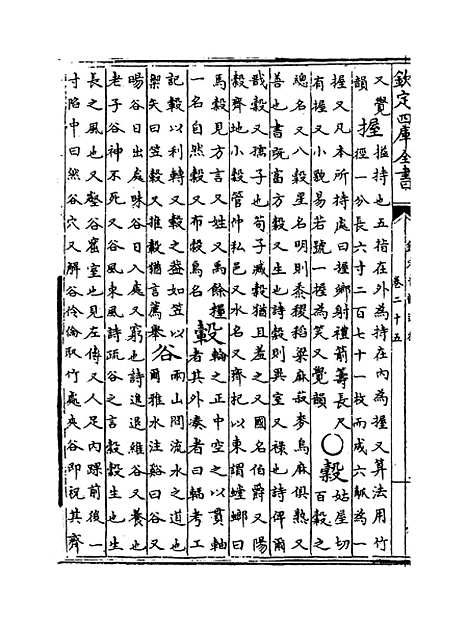 欽定四庫全書
卷二十五
又覺握搤持也五指在外為持在内為握又算法用竹
韻 握徑一分長六寸二百七十一枚而成六觚為一
握又凡本所持處曰握鄉射禮箭籌長尺○穀姑屋切
有握又小貌易若號一握為笑又覺韻 穀百穀之
總名又八穀星名明則黍稷稻粱麻菽麥烏麻俱熟又
善也書既富方穀又生也詩穀則異室又祿也詩俾爾
戩穀又孺子也荀子臧穀猶且羞之又國名伯爵又陽
穀齊地小穀管仲私邑又水名又齊杞以東謂螳螂曰
馬穀見方言又姓又馬餘糧轂輪之正中空之以貫軸
一名自然穀又布穀鳥名 轂者其外湊者曰輻考工
記轂以利轉又轂之葢如笠以谷兩山間流水之道也
禦矢曰笠轂又推轂猶言薦舉 谷爾雅水注谿曰谷又
暘谷日出處昧谷日入處又窮也詩進退維谷又養也
老子谷神不死又谷風東風詩疏谷之言穀穀生也生
長之風也又壑谷窟室也見左傳又人足内踝前後一
寸陷中曰然谷穴又解谷伶倫取竹處夾谷即祝其齊